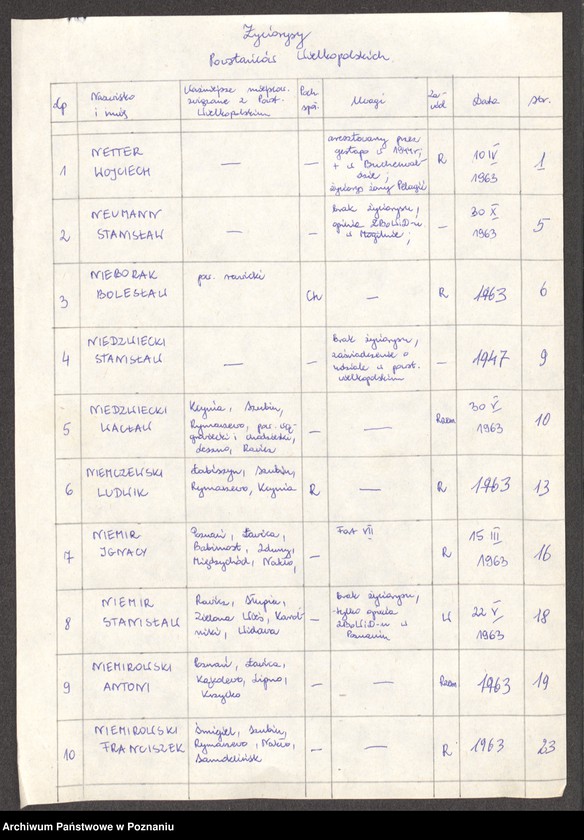 Życiorysy
Powstańców Wielkopolskich.
Lp
Nazwisko
i imię
Ważniejsze miejscow.
związane z Powst.
Wielkopolskim
Poch.
społ.
Uwagi
Za-
wód
Data
str.
1
NETTER
WOJCIECH
—
—
aresztowany przez
gestapo w 1944r;
+ w Buchenwal-
dzie;
życiorys żony Pelagii
R
10 IV
1963
1
2
NEUMANN
STANISŁAW
—
—
brak życiorysu,
opinia ZBoWiD-u
w Mogilnie;
—
30 X
1963
5
3
NIEBORAK
BOLESŁAW
pow. rawicki
Ch
—
R
1963
6
4
NIEDZWIECKI
STANISŁAW
—
—
brak życiorysu,
zaświadczenie o
udziale w powst.
wielkopolskim
—
1947
9
5
NIEDZWIECKI
WACŁAW
Kcynia, Szubin,
Rynarzewo, pow. wą-
growiecki i chodzieski,
Leszno, Rawicz
—
—
Rzem
30 V
1963
10
6
NIEMCZEWSKI
LUDWIK
Łabiszyn, Szubin,
Rynarzewo, Kcynia
R
—
R
1963
13
7
NIEMIR
IGNACY
Poznań, Ławica,
Babimost, Zduny,
Międzychód, Nakło,
—
Fort VII
R
15 III
1963
16
8
NIEMIR
STANISŁAW
Rawicz, Słupia,
Zielona Wieś, Karol-
ninki, Widawa
—
brak życiorysu,
-tylko opinia
ZBoWiD-u w
Poznaniu
U
22 V
1963
18
9
NIEMIROWSKI
ANTONI
Poznań, Ławica,
Kąkolewo, Lipno,
Krzycko
—
—
Rzem
1963
19
10
NIEMIROWSKI
FRANCISZEK
Śmigiel, Szubin,
Rynarzewo, Nakło,
Samokleński
—
—
R
1963
23
Archiwum Państwowe w Poznaniu